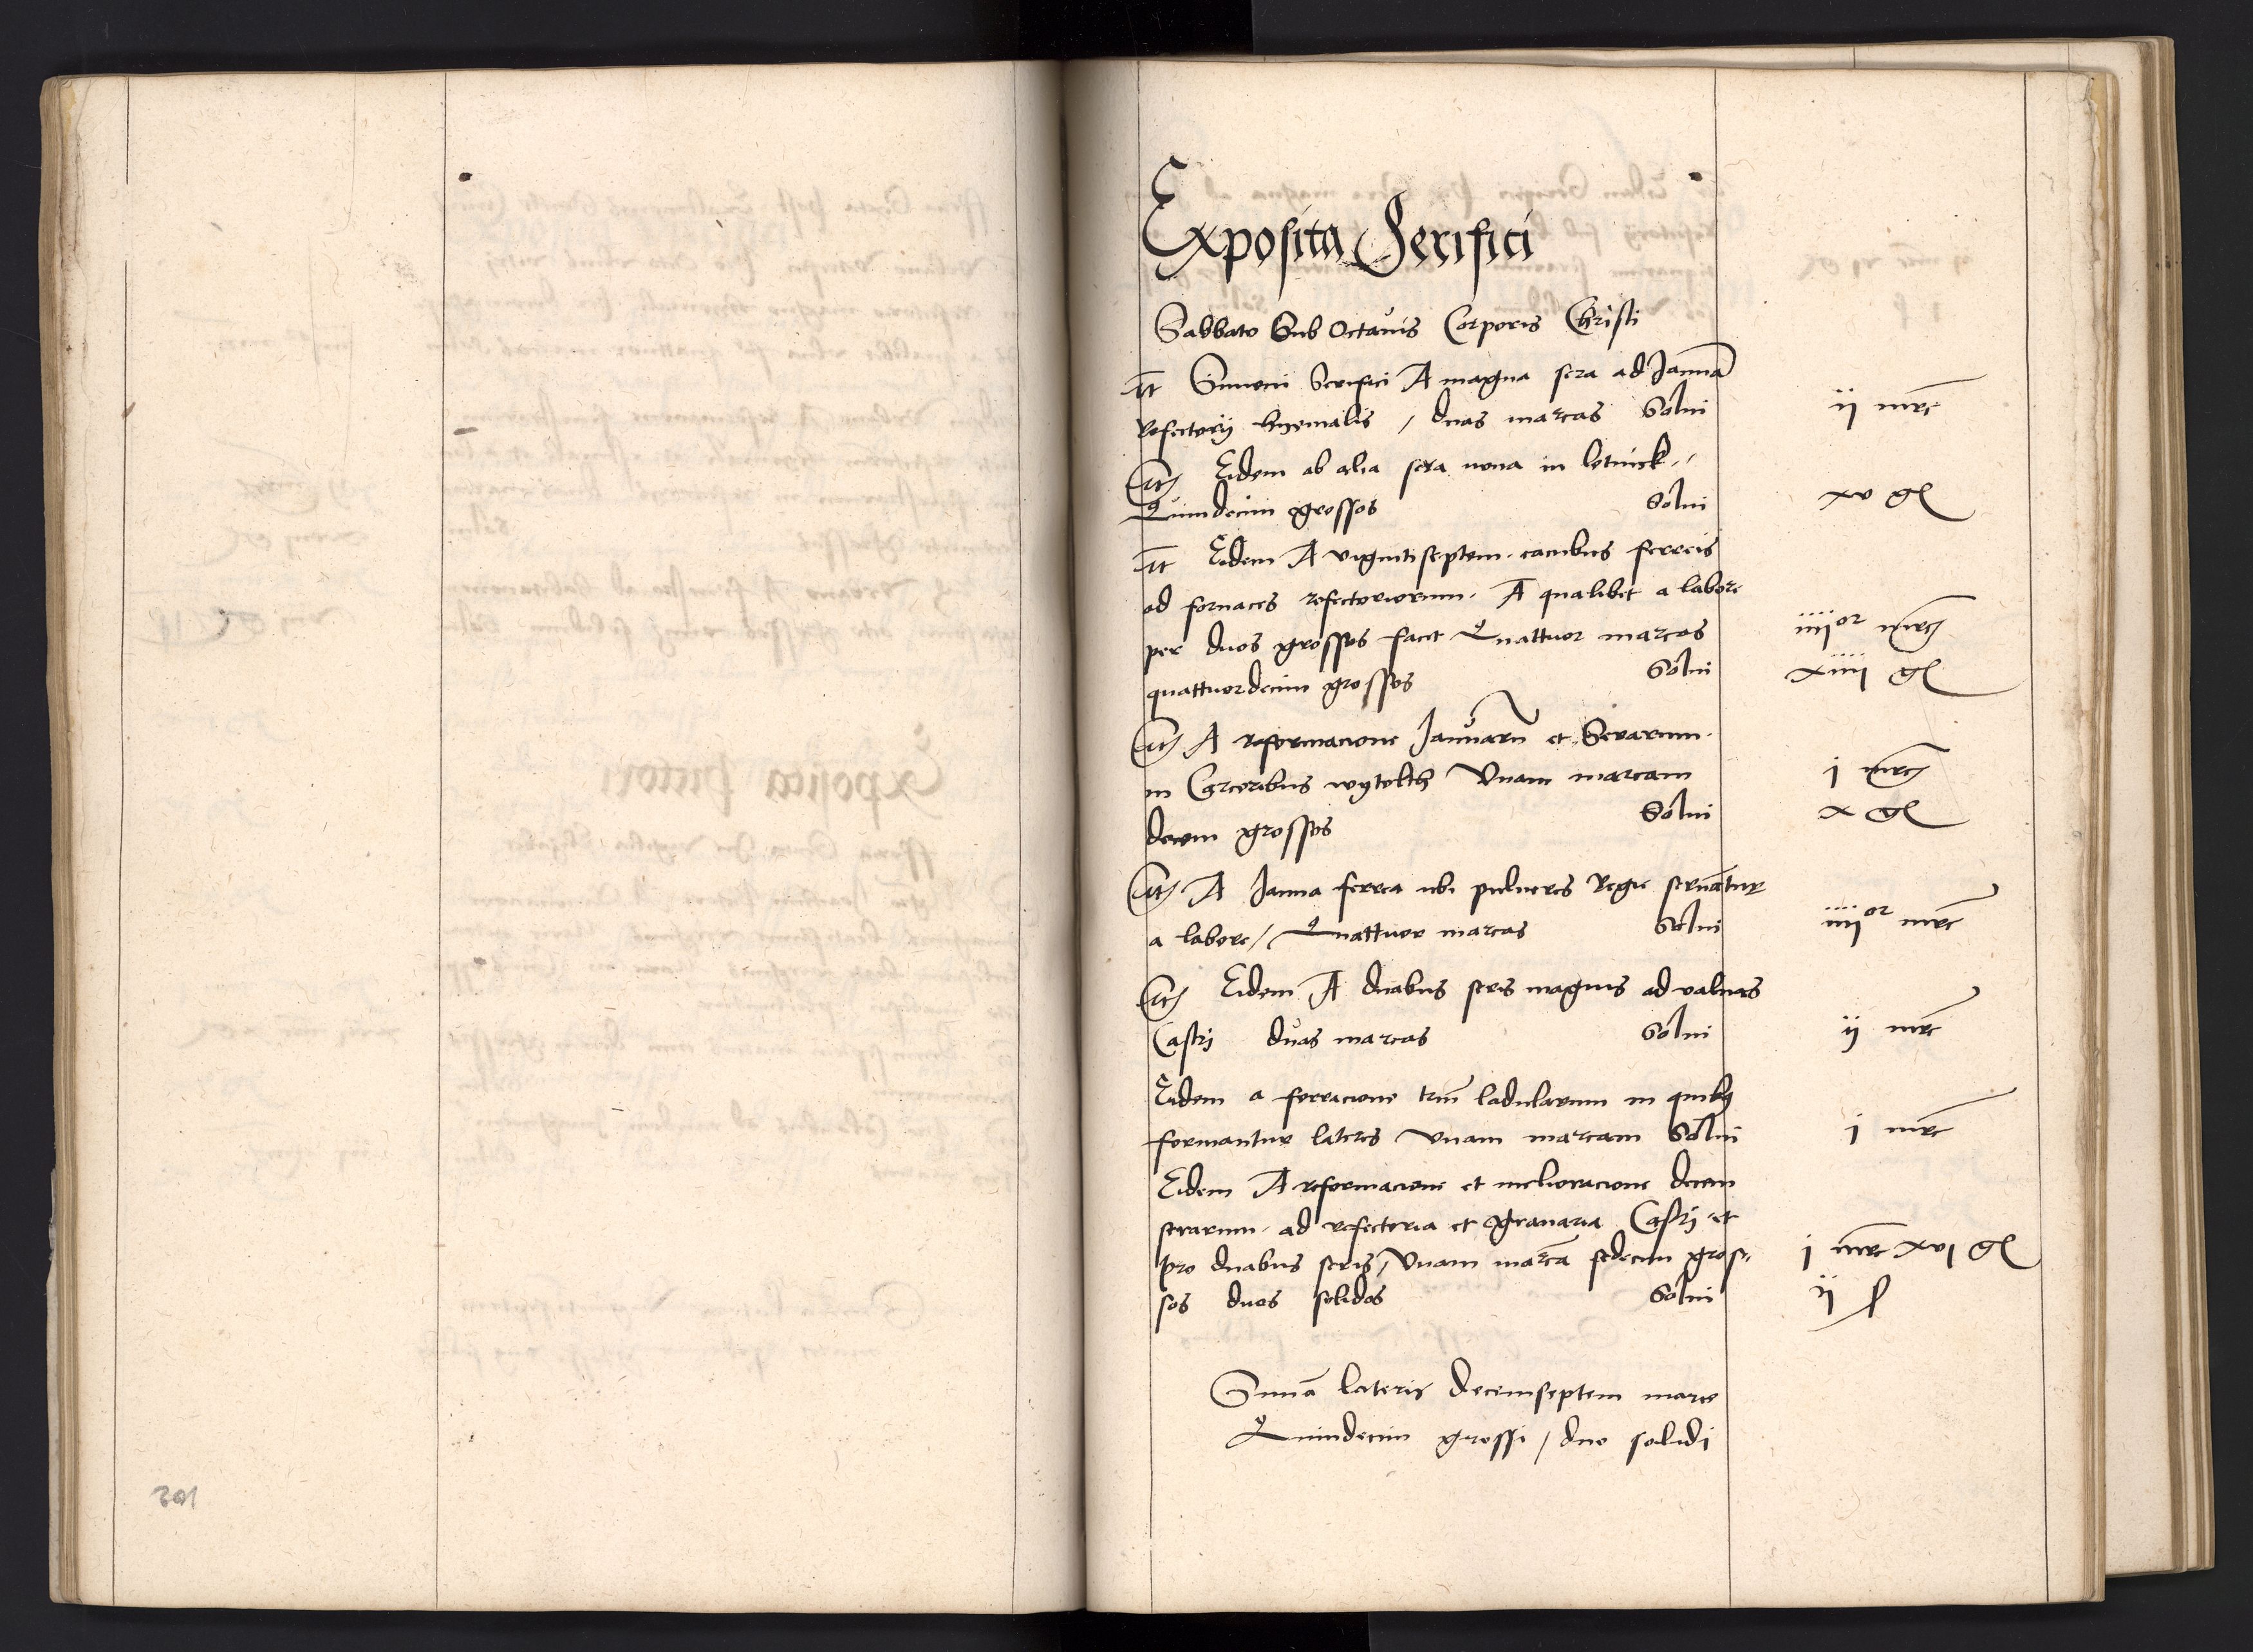 201
Exposita Serifici
Sabbato Sub Octavis Corporis Christi
It Simoni Serifici A magna sera ad Januā
refectorij hyemalis / duas marcas Solui ij mrc
Itē Eidem ab alia sera noua in letnick
Quindecim grossos Solui xv gͬ
It Eidem A vigintiseptem cacabus ferreis
ad fornaces refectoriorum A qualibet a labore
per duos grossos facit Quattuor marcas iiijor mrc
quattuordecim grossos Solui xiiij gͬ
Itē A reformacione Januarū et Serarum
in Carceribus wytolth Vnam marcam j mrc
decem grossos Solui x gͬ
Itē A Janua ferrea ubi pulueres Regie seruātur
a labore / Quattuor marcas Solui iiijor mrc
Itē Eidem A duabus seris magnis ad valuas
Castri duas marcas Solui ij mrc
Eidem a ferracione triū ladularum in quibꝫ
formantur lateres Vnam marcam Solui j mrc
Eidem A reformacione et melioracione decem
serarum ad refectoria et granaria Castri et
pro duabus seris / Vnam marcā sedecim gros- j mrc xvj gͬ
sos duos solidos Solui ij ſ
Sum̄a lateris Decemseptem marce
Quindecim grossi / duo solidi